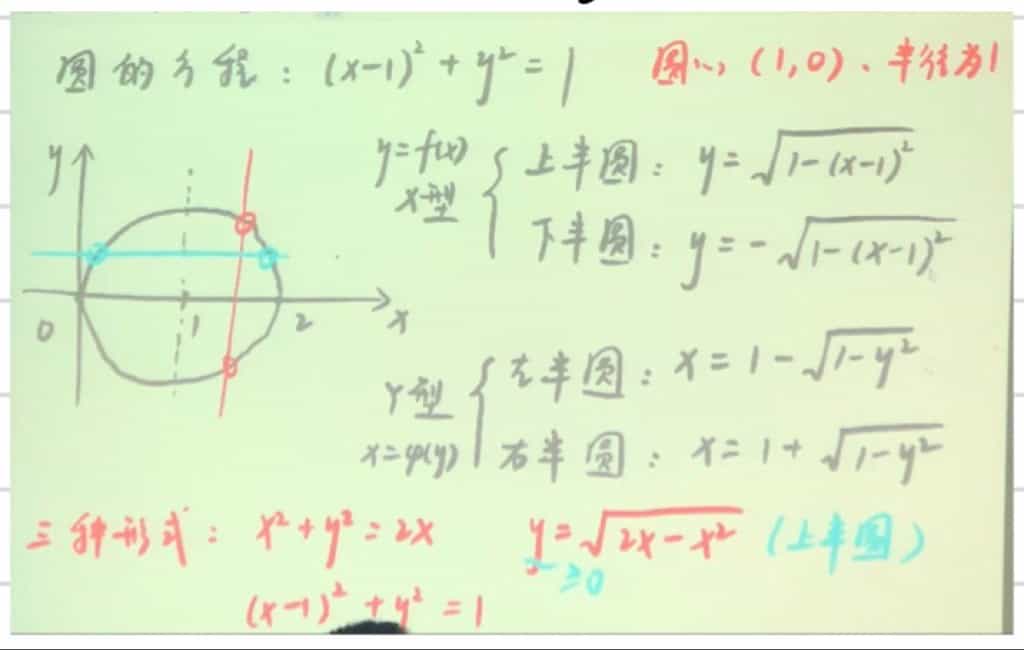 圆的方程：(x-1)²+y²=1 圆心(1,0)、半径为1
y
0 1 2 x
y=f(x)
X型
上半圆：y=√(1-(x-1)²)
下半圆：y=-√(1-(x-1)²)
Y型
x=φ(y)
左半圆：x=1-√(1-y²)
右半圆：x=1+√(1-y²)
三种形式：x²+y²=2x y=√(2x-x²) (上半圆)
≥0
(x-1)²+y²=1